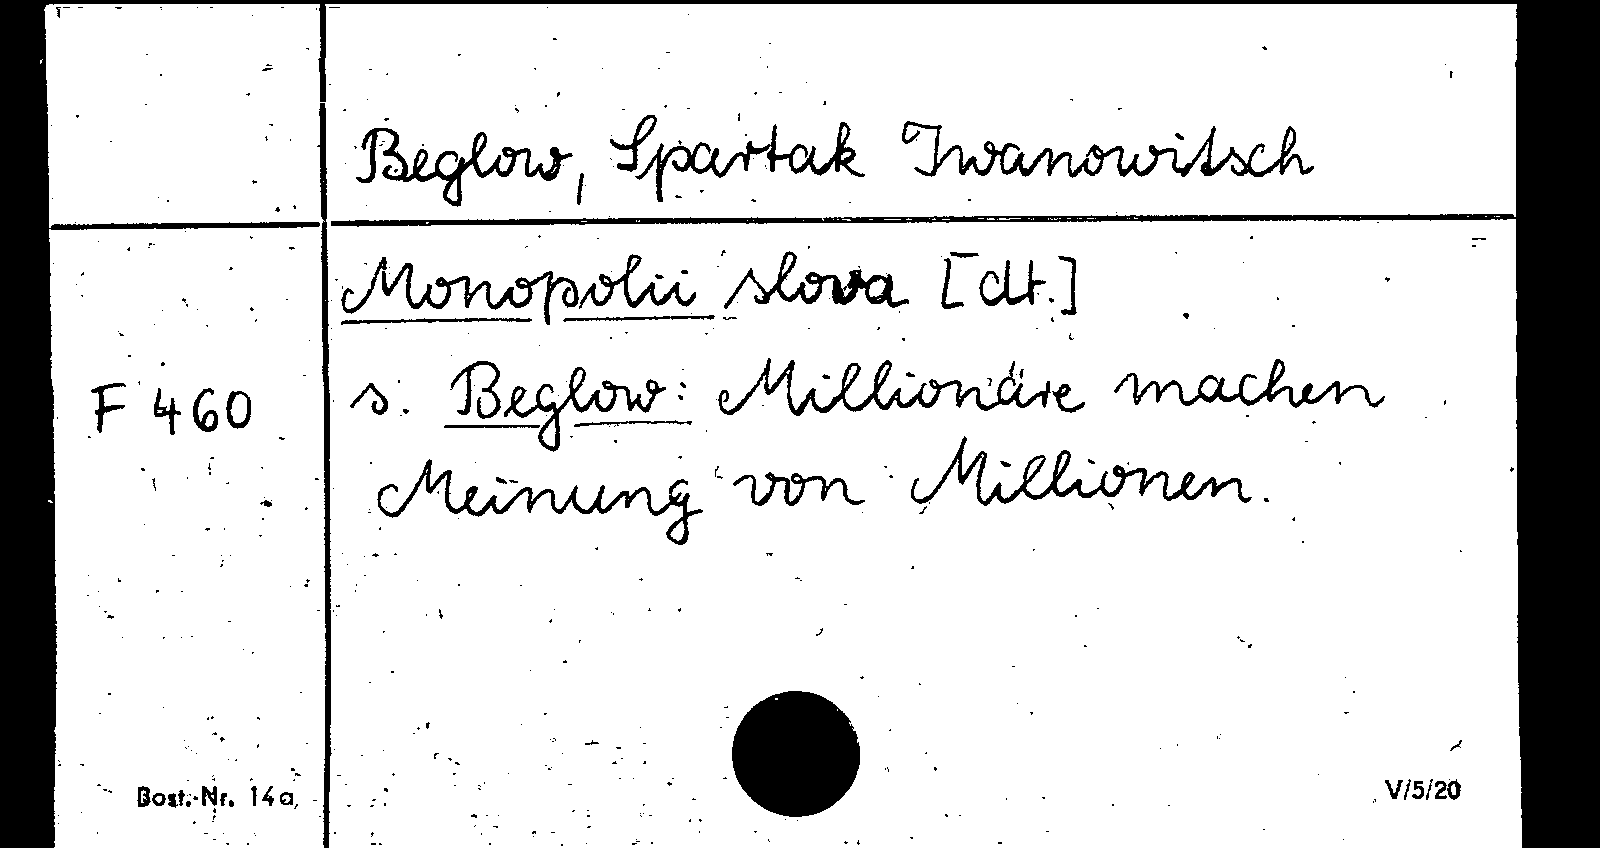 Beglow, Spartak Iwanowitsch
Monopolii slova [dt.]
F 460 s. Beglow: Millionäre machen
Meinung von Millionen.
Best.-Nr. 14a
V/5/20